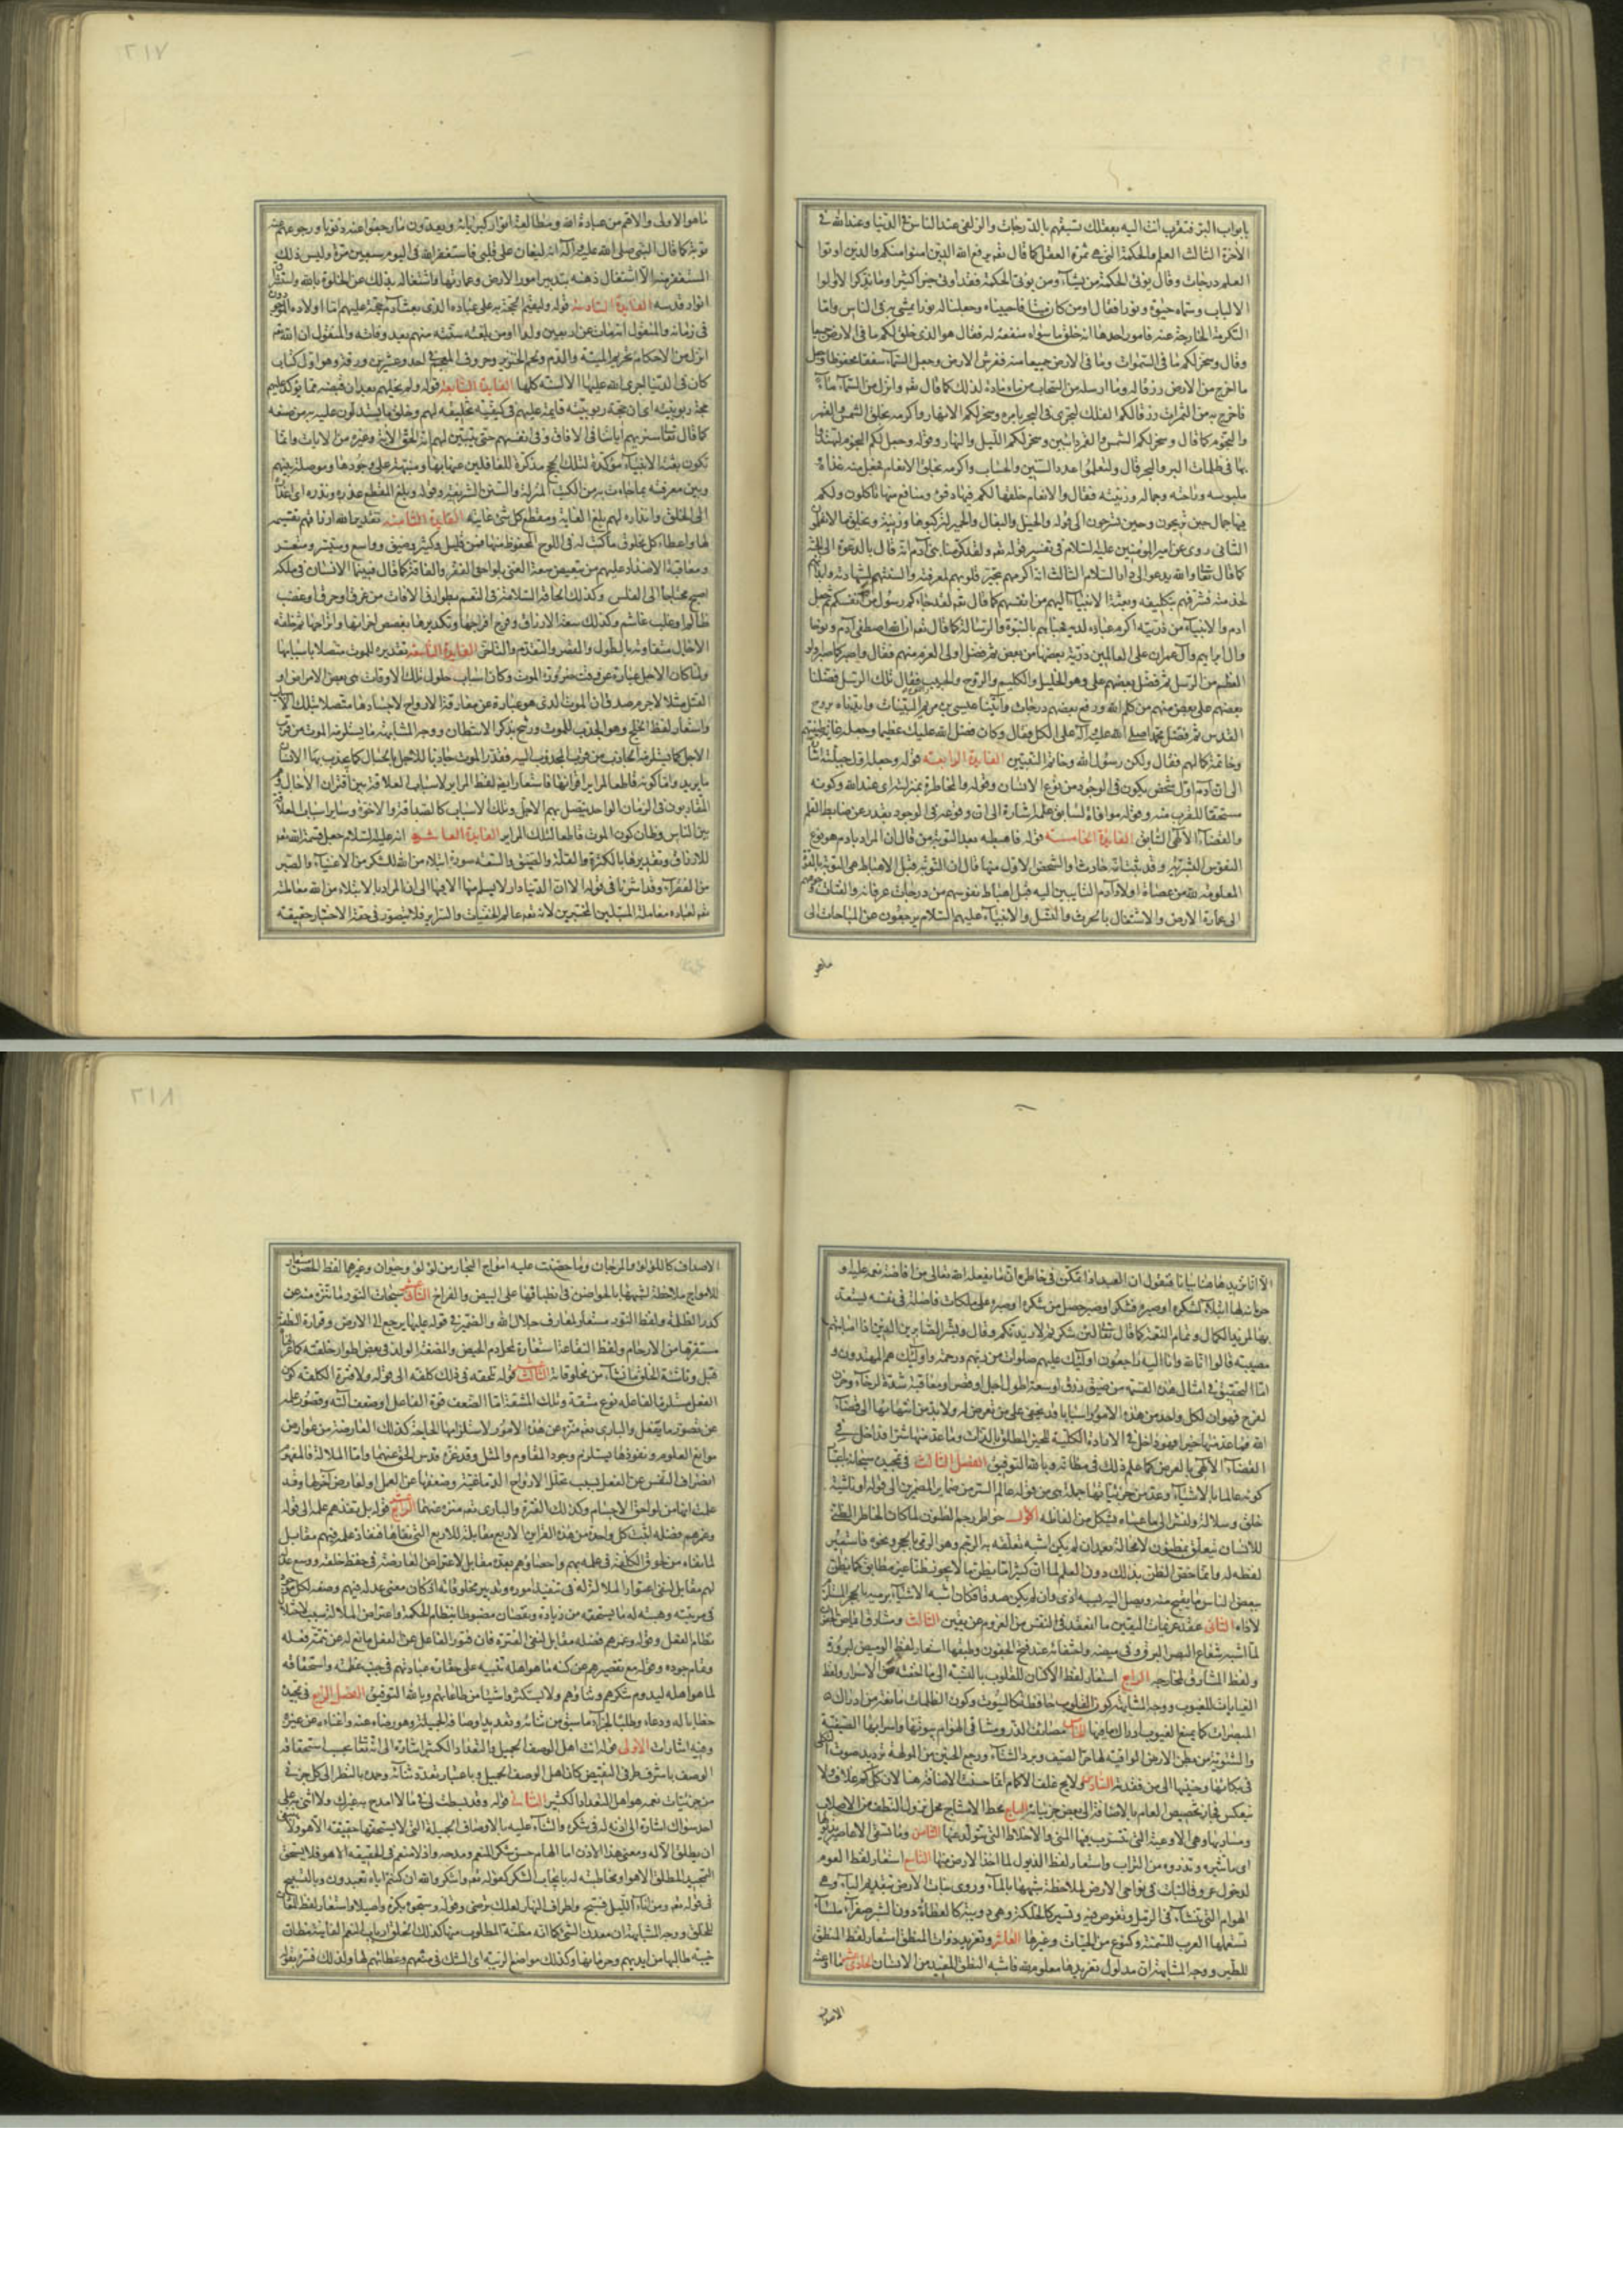 ٢١٧
بابواب البر فتقرب انت اليه بعقلك تسبقهم بالدرجات والزلفى عند الناس فى الدنيا وعند الله فى
الآخرة الثالث العلم والحكمة التى هى ثمرة العقل كما قال تعم يرفع الله الذين امنوا منكم والذين اوتوا
العلم درجات وقال يؤتى الحكمة من يشآء ومن يؤتى الحكمة فقد اوتى خيرا كثيرا وما يذكر الا اولوا
الالباب وسماه حيوة ونورا فقال اومن كان ميتا فاحييناه وجعلنا له نورا يمشى به فى الناس واما
التكرمة الخارجة عنه فامور احدها انه خلق ما سواه منفعة له فقال هو الذى خلق لكم ما فى الارض جميعا
وقال وسخر لكم ما فى السموات وما فى الارض جميعا منه ففرش الارض وجعل السمآء سقفا محفوظا وجعل
ما اخرج من الارض رزقا له وما ارسله من السحاب من مآء مادة لذلك كما قال تعم وانزل من السمآء مآء
فاخرج به من الثمرات رزقا لكم الفلك لتجرى فى البحر بامره وسخر لكم الانهار واكرمه بخلق الشمس والقمر
والنجوم كما قال وسخر لكم الشمس والقمر دائبين وسخر لكم الليل والنهار وقوله وجعل لكم النجوم لتهتدوا
بها فى ظلمات البر والبحر وقال ولتعلموا عدد السنين والحساب واكرمه بخلق الانعام فجعل منه غذاءه
ملبوسه وراحته وجماله وزينته فقال والانعام خلقها لكم فيها دفئ ومنافع منها تاكلون ولكم
فيها جمال حين تريحون وحين تسرحون الى قوله والخيل والبغال والحمير لتركبوها وزينة ويخلق ما لا تعلمون
الثانى روى عن امير المؤمنين عليه السلام فى تفسير قوله تعم ولقد كرمنا بنى آدم انه قال بالدعوة الى الجنة
كما قال تعا والله يدعو الى دار السلام الثالث انه اكرمهم بخيرة قلوبهم لمعرفته والسنتهم لشهادته وابدانهم
لخدمته فشرفهم بتكليفه وبعثة الانبيآء اليهم من انفسهم كما قال تعم لقد جاءكم رسول من انفسكم ثم جعل
ادم والانبيآء من ذريته اكرم عباده لديه فحباهم بالنبوة والرسالة كما قال تعم ان الله اصطفى آدم ونوحا
وآل ابراهيم وآل عمران على العالمين ذرية بعضها من بعض ثم فضل اولى العزم منهم فقال واصبر كما صبر اولو
العظم من الرسل ثم فضل بعضهم على وهو الخليل والكليم والروح والحبيب فقال تلك الرسل فضلنا
بعضهم على بعض منهم من كلم الله ورفع بعضهم درجات وآتينا عيسى بن مريم البينات وايدناه بروح
القدس ثم فضل محمدا صلى الله عليه وآله على الكل فقال وكان فضل الله عليك عظيما وجعله غاية طينتهم
وخاتمة كمالهم فقال ولكن رسول الله وخاتم النبيين الفايدة الرابعة قوله وجعله اول جبلته
الى ان آدم اول شخص يكون فى الوجود من نوع الانسان وقوله والمخاطرة بمنزلته اى عند الله وكونه
مستحقا للقرب منه وقوله موافاة لسابق علمه اشارة الى ان وقوعه فى الوجود بقدر عن ضابط القلم
والقضآء الالهى السابق الفايدة الخامسة قوله فاهبطه بعد التوبة من قال ان المراد بادم هو نوع
النفوس البشرية وقد ثبت انه حادث والشخص الاول منها قال ان التوبة قبل الاهباط هى التوبة بالقوة
المعلومة لله من عصاة اولاد آدم التايبين اليه قبل اهباط نفوسهم من درجات عرفانه والتفاتهم
الى عمارة الارض والاشتغال بالحرث والنسل والانبيآء عليهم السلام يرجعون عن المباحات الى
ماهو
ما هو الاولى والاهم من عبادة الله ومطالعة انوار كبريائه ويعدون ما رجعوا عنه ذنوبا ورجوعهم عنه
توبة كما قال النبى صلى الله عليه وآله انه ليغان على قلبى فاستغفر الله فى اليوم سبعين مرة وليس ذلك
المستغفر منه الا اشتغال ذهنه بتدبير امور الارض وعمارتها واشتغاله بذلك عن الخلوة بالله واستشراق
انوار قدسه الفايدة السادسة قوله وليقيم الحجة به على عباده الذى بعث آدم حجة عليهم اما اولاده الموجودون
فى زمانه والمنقول انه مات عن اربعين ولدا او من بلغته سنته منهم بعد وفاته والمنقول ان الله تعم
انزل من الاحكام تحريم الميتة والدم ولحم الخنزير وحروف المعجم فى احد وعشرين ورقة وهو اول كتاب
كان فى الدنيا اجرى الله عليها الالسنة كلها الفايدة السابعة قوله ولم يخلهم بعد ان قبضه مما يؤكد عليهم
حجة ربوبيته اى ان حجة ربوبيته قايمة عليهم فى كيفية تخليقه لهم وخلق ما يستدلون عليه به من صنعه
كما قال تعا سنريهم آياتنا فى الافاق وفى انفسهم حتى يتبين لهم انه الحق الآية وغيره من الايات وانما
تكون بعثة الانبيآء مؤكدة لتلك الحجج مذكرة للغافلين عنها بها ومنبهة على وجودها وموصلة بينهم
وبين معرفته بما جاءت به من الكتب المنزلة والسنن الشرعية وقوله وبلغ المقطع عذره ونذره اى اعذار
الى الخلق وانذاره لهم بلغ الغاية ومقطع كل شئ غايته الفايدة الثامنة تقدير الله ارزاقهم تقسيمه
لها واعطاء كل مخلوق ما كتب له فى اللوح المحفوظ منها من قليل وكثير وضيق وواسع ومتيسر ومتعسر
ومعاقبة الاضداد عليهم من تعقيب سعة الغنى بلواحق الفقر والفاقة كما قال فبينما الانسان فى ملكه
اصبح محتاجا الى الفلس وكذلك الحاق السلامة فى النفس بطوارق الافات من غرق او حرق او غضب
ظالم او غلب غاشم وكذلك سعة الارزاق وفرج افراحها وتكديرها بغصص احزانها واتراحها ثم خلقه
الآجال متفاوتة بالطول والقصر والتقدم والتاخر الفايدة التاسعة تقديره للموت متصلا باسبابها
ولما كان الاجل عبارة عن وقت ضرورة الموت وكان اسباب حلول تلك الاوقات هى بعض الامراض او
القتل مثلا لاجرم صدق ان الموت الذى هو عبارة عن مفارقة الارواح لاجسادها متصلا بتلك الاسباب
واستعار لفظ الخلج وهو الجذب للموت ورشح بذكر الاشطان ووجه المشابهة ما يستلزمه الموت من قرب
الاجل كما يستلزمه الجاذب من قرب المجذوب اليه فقدر الموت جاذبا للاجل بالحبال كما يجذب بها الانسان
ما يريد واما كونه قاطعا لمراير اقرانها فاستعار ايضا لفظ المراير لاسبابها لعلاقة بين اقتران الآجال
المتقاربون فى الزمان الواحد يتصل بهم الاجل وتلك الاسباب كالصداقة والاخوة وساير اسباب العلاقة
بين الناس وظان كون الموت قاطعا لتلك المراير الفايدة العاشرة انه عليه السلام جعل قسمة الله تعم
للارزاق وتقديرها بالكثرة والقلة والضيق والسعة صورة ابتلاء من الله للشكر من الاغنيآء والصبر
من الفقرآء وقد اشرنا فى قوله الا ان الدنيا دار لا يسلم منها الا فيها الى ان المراد بالابتلاء من الله معاملة
تعم لعباده معاملة المبتلين المختبرين لانه تعم عالم الخفيات والسراير فلا يتصور فى حقه الاختبار حقيقة
٢١٨
الا انا نريدها هنا بيانا فنقول ان العبد اذا تمكن فى خاطره ان ما يفعله الله تعالى من افاضة نعمه عليه او
حرمانه لها ابتلاء لشكره او صبره فشكر او صبر حصل من شكره او صبره على ملكات فاضلة فى نفسه يستعد
بها لمزيد الكمال وتمام النعمة كما قال تعا لئن شكرتم لازيدنكم وقال وبشر الصابرين الذين اذا اصابتهم
مصيبة قالوا انا لله وانا اليه راجعون اولئك عليهم صلوات من ربهم ورحمة واولئك هم المهتدون و
اما التحقيق فى امثال هذه القسمة من ضيق رزق او سعة او طول اجل او قصر او معاقبة شدة لرخآء وحزن
لفرح فهو ان لكل واحد من هذه الامور اسبابا قد يخفى على من تعرض له ولا بد من انتهائها الى قضآء
الله فما عد منها خيرا فهو داخل فى الارادة الكلية للخير المطلوب بالذات وما عد منها شرا فداخل فى
القضآء الالهى بالعرض كما علم ذلك فى مظانه وبالله التوفيق الفصل الثالث فى تمجيده سبحانه باعتبار
كونه عالما بالاشيآء وعد من جزئياتها جملة وهى من قوله عالم السر من ضماير المضمرين الى قوله او ناشئة
خلق وسلالة ولنشر الى ما عساه يشكل من الفاظه الاول خواطر رجم الظنون لما كان الخاطر الظنى
للانسان يتعلق بمظنون لا محالة بعد ان لم يكن اشبه تعلقه به الرجم وهو الرمى بالحجر ونحوه فاستعير
لفظه له وانما خص الظن بذلك دون العلم لما ان كثيرا ما يظن ما لا يجوز ظنا غير مطابق كما يظن
ببعض الناس ما يقبح منه ويصل اليه بسببه اذى وان لم يكن صدقا فكان شبه الاشيآء برميه بالحجر
لاذاه الثانى عقد عزيمات اليقين ما انعقد فى النفس من العزوم عن يقين الثالث ومسارق ايماض الجفون
لما اشبه شعاع البصر البروق فى وميضه واختفائه عند فتح الجفون وطبقها استعار لفظ الوميض لبروزه
ولفظ المسارق لمخارجه الرابع استعار لفظ الاكنان للقلوب بالنسبة الى ما اخفته من الاسرار ولفظ
الغيابات للغيوب ووجه المشابهة كون القلوب حافظة كالبيوت وكون الظلمات مانعة من ادراك
المبصرات كما يمنع الغيوب ادراك ما فيها الخامس مصايف الذر ومشاتى الهوام بيوتها واسرابها الصيفية
والشتوية من بطن الارض الواقية لها حر الصيف وبرد الشتآء ورجع الحنين من المولهة ترديد صوت
فى بكائها وحنينها الى من فقدته السادس ولايج غلف الاكمام انما حسنت الاضافة هنا لان كل كم غلاف ولا
ينعكس فجاز تخصيص العام بالاضافة الى بعض جزئياته السابع محط الامشاج محل نزول النطف من الاصلاب
ومساربها وهى الاوعية التى تتسرب فيها المنى والاخلاط التى يتولد عنها الثامن وما تسفى الاعاصير
اى ما تثيره وتذروه من التراب واستعار لفظ الذيول لما اخذ الارض منها التاسع استعار لفظ العوم
لدخول عروق النبات فى نواحى الارض لملاحظة شبهها بالمآء وروى بنات الارض بتقديم البآء وهى
الهوام التى تنشآء فى الرمل وتغوص فيه وتسير كالحلكة وهى دويبة كالعظاة دون الشبر صفرآء ملسآء
تستعملها العرب للسمنة وكنوع من الحيات وغيرها العاشر وتغريد ذوات المنطق استعار لفظ المنطق
للطير ووجه المشابهة ان مدلول تغريدها معلوم لله فاشبه النطق المفيد من الانسان الحادى عشر ما اوعته
الاصداف
الاصداف كاللؤلؤ والمرجان وما حضنت عليه امواج البحار من لؤلؤ وحيوان وغيرهما لفظ الحضن مستعار
للامواج ملاحظة لشبهها بالحواضن فى انطباقها على البيض والفراخ الثانى عشر سبحات النور ما تنزه منه عن
كدر الظلمة ولفظ النور مستعار لمعارف جلال الله والضمير فى قوله عليها يرجع الى الارض وقرارة النطفة
مستقرها من الارحام ولفظ النقاعة استعارة لمحل دم الحيض والمضغة الولد فى بعض اطوار خلقته كما عرفت
قبل وناشئة الخلق ما نشآء من مخلوقاته الثالث عشر قوله لم يلحقه فى ذلك كلفة الى قوله ولا فترة الكلفة كون
الفعل مستلزما لفاعله نوع مشقة وتلك المشقة اما لضعف قوة الفاعل او ضعف آلته او قصور علمه
عن تصور ما يفعل والبارى تعم منزه عن هذه الامور لاستلزامها الحاجة وكذلك العارضة من عوارض
موانع العلوم ونفوذها يستلزم وجود المقاوم والمثل وقد عرفت قدس الحق عنهما واما الملالة فالمفهوم
انصراف النفس عن الفعل بسبب تحلل الارواح الدماغية وضعفها عن العمل او لعارض آخر لها وقد
علمت انها من لواحق الاجسام وكذلك الفترة والبارى تعم منزه عنهما الرابع عشر قوله بل نفذهم علمه الى قوله
وغمرهم فضله اثبت كل واحدة من هذه القراين الاربع مقابلة للاربع التى نفاها فنفاذ علمه فيهم مقابل
لما نفاه من لحوق الكلفة فى علمه بهم واحصاؤهم بعده مقابل لاعتراض العارضة فى حفظ خلقه ووسع عدله
لهم مقابل لنفى اعتوار الملالة له فى تنفيذ اموره وتدبير مخلوقاته اذ كان معنى عدله فيهم وضعه لكل موجود
فى مرتبته وهبته له ما يستحقه من زيادة ونقصان مضبوطا بنظام الحكمة واعتراض الملالة سبب لاختلال
نظام الفعل وقوله وغمرهم فضله مقابل لنفى الفترة فان فتور الفاعل عن الفعل مانع له عن تتميم فعله
وتمام جوده وقوله مع تقصيرهم عن كنه ما هو اهله تنبيه على حقارة عبادتهم فى جنب عظمته واستحقاقه
لما هو اهله ليدوم شكرهم وثناؤهم ولا يستكثروا شيئا من طاعاتهم وبالله التوفيق الفصل الرابع فى تمجيده
خطابا له ودعاء وطلبا للجزآء ما سبق من ثنائه وتعديد اوصافه الجميلة وهو رضاءه عنه واغناءه عن غيره
وفيه اشارات الاولى قوله انت اهل الوصف الجميل والتعداد الكثير اشارة الى انه تعا بحسب استحقاقه
الوصف باشرف طرفى النقيض كان اهل الوصف الجميل وباعتبار تعدد ثنائه وحده بالنظر الى كل جزئى
من جزئيات نعمه هو اهل التعداد الكثير الثانية قوله وقد بسطت لى فيما لا امدح به غيرك ولا اثنى به على
احد سواك اشارة الى اذنه له فى شكره والثنآء عليه بالاوصاف الجميلة التى لا يستحقها حقيقة الا هو ولا
ان يطلق الا له ومعنى هذا الاذن اما الهام حسن شكر المنعم ومدحه واذ لا منعم فى الحقيقة الا هو فلا يستحق
التمجيد المطلق الا هو او مخاطبته له بايجاب الشكر كقوله تعم واشكروا لله ان كنتم اياه تعبدون وبالتسبيح
فى قوله تعم ومن آنآء الليل فسبح واطراف النهار لعلك ترضى وقوله وسبحوه بكرة واصيلا واستعار لفظ المعادن
للخلق ووجه المشابهة ان معدن الشئ كما انه مظنة المطلوب منها كذلك الخلق ارباب النعم الفانية مظان
خيبة طالبها من ايديهم وحرمانها وكذلك مواضع الريبة اى الشك فى منعهم وعطائهم لها ولذلك فسره بقوله